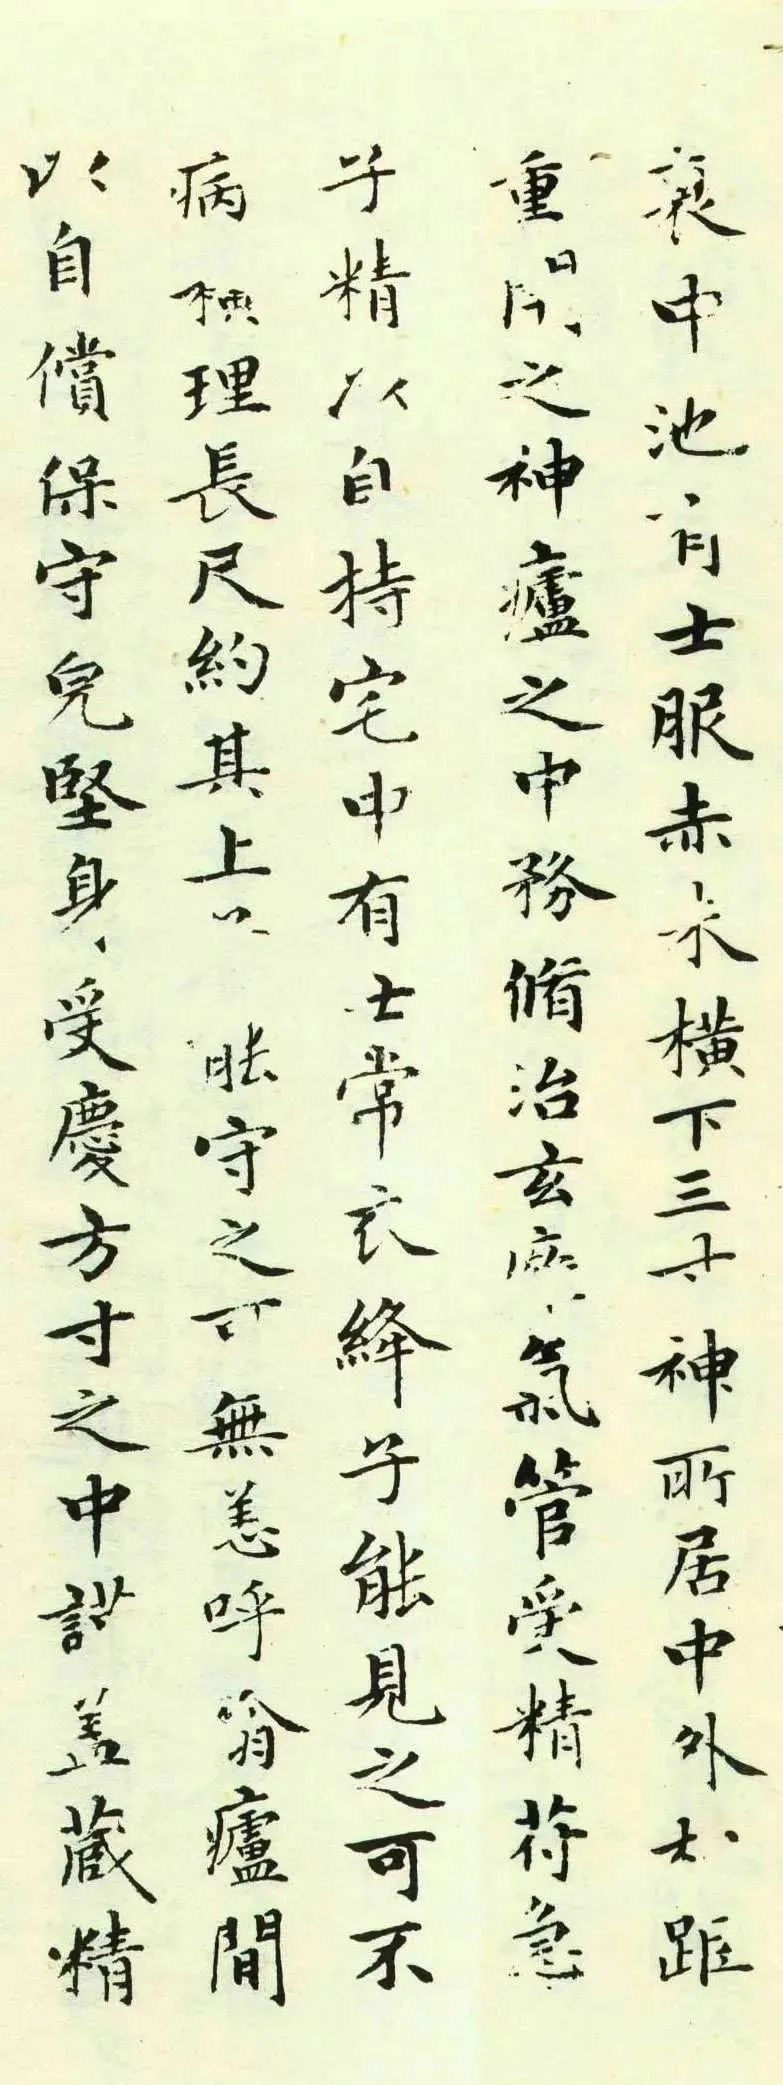 衰中池有士服赤朱横下三寸神所居中外相距
重閇之神廬之中務脩治玄㢕氣管受精苻急
子精以自持宅中有士常衣絳子能見之可不
病横理長尺約其上 能守之可無恙呼翕廬間
以自償保守皃堅身受慶方寸之中謹盖蔵精